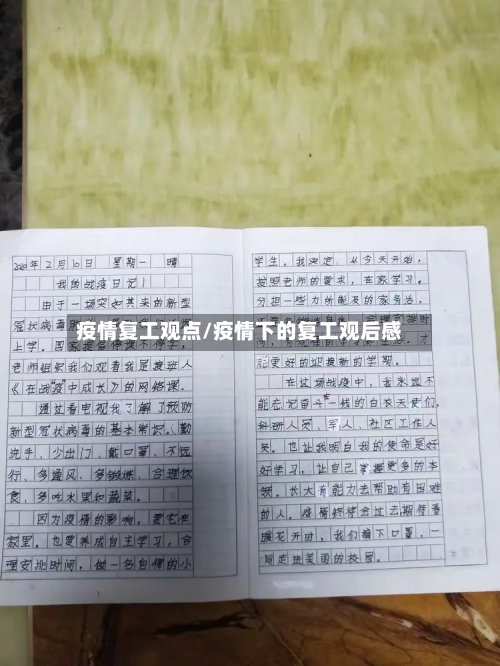 2020年2月10日 星期一 晴
我的战疫日记1
由于一场突如其来的新型
冠状病毒
上学。国家提倡停课不停学,
老师组织我们观看我是接班人
《在战"疫"中成长》的网络课。
通过看电视我了解了预防
新型冠状病毒的基本常识。勤
洗手、少出门、戴口罩、不远
行、多通风、多锻炼、合理饮
食、多吃水果和蔬菜。
因为疫情的影响,要宅在
家里。也要养成自主学习,合
理安排时间,做一名自律的小
疫情复工观点/疫情下的复工观后感
学生。我决定,从今天开始,
按照老师的要求,在家学习。
分担一些力所能及的家务活,
能更好的迎接新的学期。
在这场战疫中,我永远不
能忘记奋斗在一线的白衣天使们,
科研人员、军人、社区工作人
员。也让我明白我的使命是好
好学习,让自己掌握更多的本
领。长大有能力去帮助有困难
的人。疫情终将会过去期待春
暖花开时,我们摘下口罩,一
同走进美丽的校园。